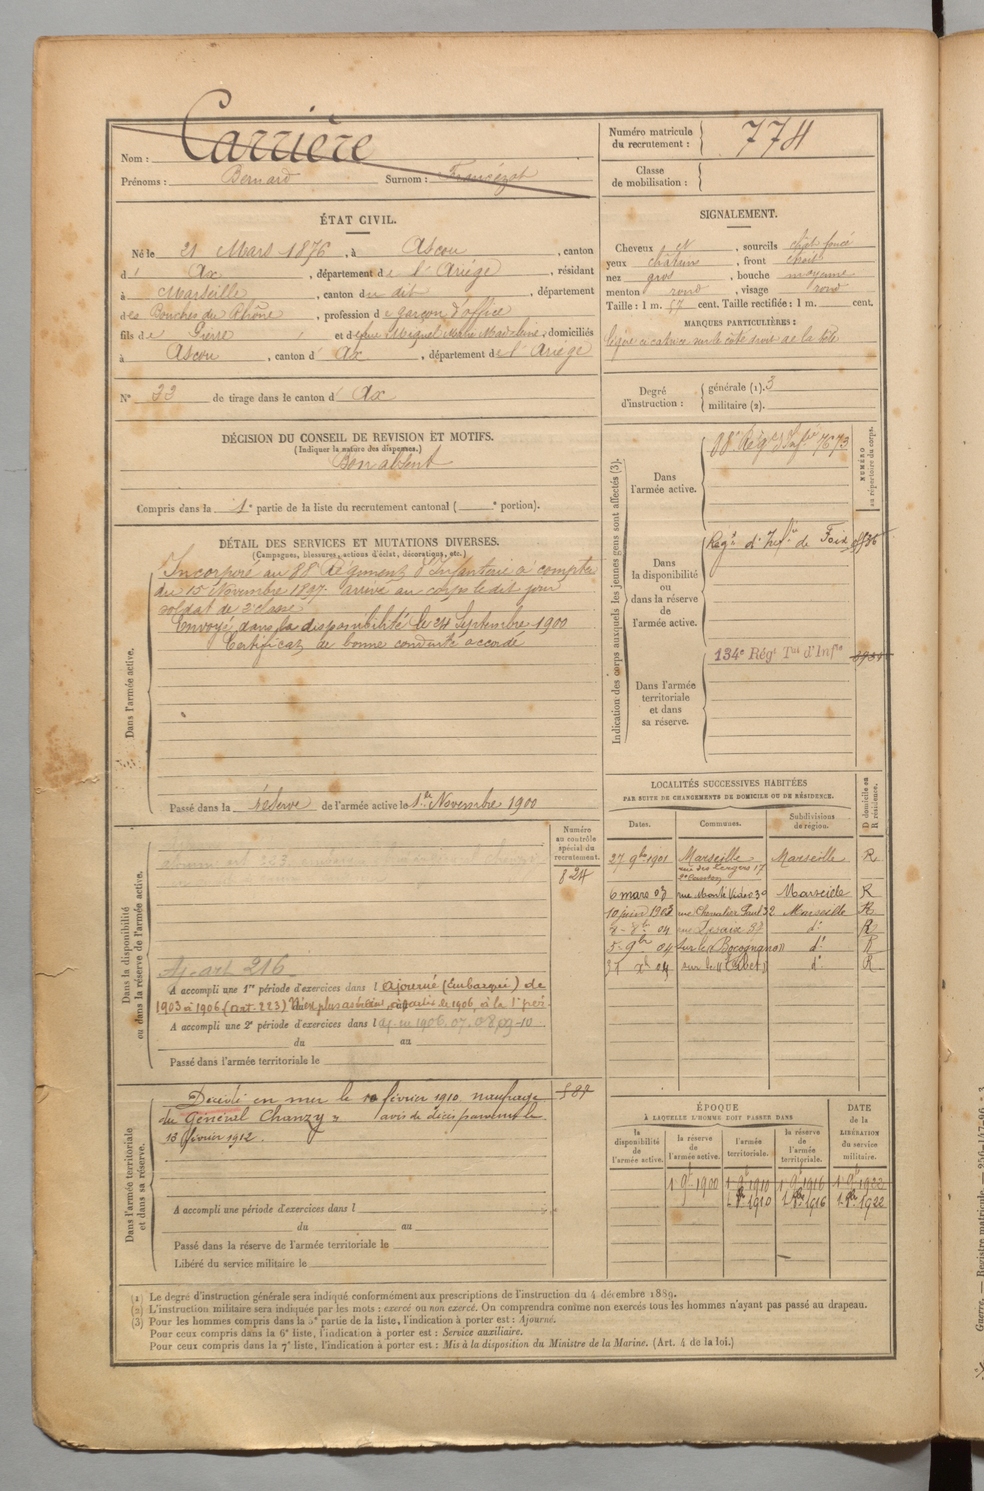 Nom : Carrière
Prénoms : Bernard Surnom :
Numéro matricule du recrutement : 774
Classe de mobilisation :
ÉTAT CIVIL.
Né le 21 Mars 1876, à Ascou, canton
d' Ax, département de l'Ariège, résidant
à Marseille, canton du dit, département
des Bouches du Rhône, profession de garçon d'office
fils de Pierre et de Marie Madeleine, domiciliés
à Ascou, canton d' Ax, département de l'Ariège
N° 33 de tirage dans le canton d' Ax
DÉCISION DU CONSEIL DE REVISION ET MOTIFS.
(Indiquer la nature des dispenses.)
Bon absent
Compris dans la 1e partie de la liste du recrutement cantonal ( e portion).
DÉTAIL DES SERVICES ET MUTATIONS DIVERSES.
(Campagnes, blessures, actions d'éclat, décorations, etc.)
Dans l'armée active.
Incorporé au 88e Régiment d'Infanterie à compter
du 15 Novembre 1897. arrivé au corps le dit jour
soldat de 2e classe
Envoyé dans la disponibilité le 24 Septembre 1900
Certificat de bonne conduite accordé
Passé dans la réserve de l'armée active le 1er Novembre 1900
Dans la disponibilité ou dans la réserve de l'armée active.
Numéro au contrôle spécial du recrutement.
824
art 216
A accompli une 1re période d'exercices dans l ajourné (Embarqué) de
1903 à 1906 (art. 223) à partir de 1906, à la 1e pér.
A accompli une 2e période d'exercices dans l aj. en 1906. 07. 08 09-10
du au
Passé dans l'armée territoriale le
Dans l'armée territoriale et dans sa réserve.
Décédé en mer le 10 février 1910, naufrage
du Général Chanzy » avis de décès parvenu le
13 février 1912.
A accompli une période d'exercices dans l
du au
Passé dans la réserve de l'armée territoriale le
Libéré du service militaire le
SIGNALEMENT.
Cheveux et, sourcils chât. foncé
yeux châtain, front étroit
nez gros, bouche moyenne
menton rond, visage rond
Taille : 1 m. 67 cent. Taille rectifiée : 1 m. cent.
MARQUES PARTICULIÈRES :
légère cicatrice sur le côté droit de la tête
Degré d'instruction : générale (1). 3
militaire (2).
Indication des corps auxquels les jeunes gens sont affectés (3).
NUMÉRO au répertoire du corps.
Dans l'armée active.
88e Rég. d'Infie 7673
Dans la disponibilité ou dans la réserve de l'armée active.
Régt d'Infie de Foix
Dans l'armée territoriale et dans sa réserve.
134e Régt Tal d'Infie
LOCALITÉS SUCCESSIVES HABITÉES
PAR SUITE DE CHANGEMENTS DE DOMICILE OU DE RÉSIDENCE.
Dates. Communes. Subdivisions de région. D domicile ou R résidence.
27 9bre 1901 Marseille rue des Bergers 17 Marseille R
6 mars 03 rue Montévideo 30 Marseille R
10 juin 1903 rue Chevalier Paul 32 Marseille R
04 rue d° R
5-9bre 04 sur le "Bocognano" d° R
04 sur le "Tibet" d° R
ÉPOQUE
À LAQUELLE L'HOMME DOIT PASSER DANS
la disponibilité de l'armée active.
la réserve de l'armée active.
l'armée territoriale.
la réserve de l'armée territoriale.
DATE de la LIBÉRATION du service militaire.
1 9bre 1900 1 9bre 1910 1 9bre 1916 1 9bre 1922
1 8bre 1910 1 8bre 1916 1 8bre 1922
(1) Le degré d'instruction générale sera indiqué conformément aux prescriptions de l'instruction du 4 décembre 1889.
(2) L'instruction militaire sera indiquée par les mots : exercé ou non exercé. On comprendra comme non exercés tous les hommes n'ayant pas passé au drapeau.
(3) Pour les hommes compris dans la 5e partie de la liste, l'indication à porter est : Ajourné.
Pour ceux compris dans la 6e liste, l'indication à porter est : Service auxiliaire.
Pour ceux compris dans la 7e liste, l'indication à porter est : Mis à la disposition du Ministre de la Marine. (Art. 4 de la loi.)